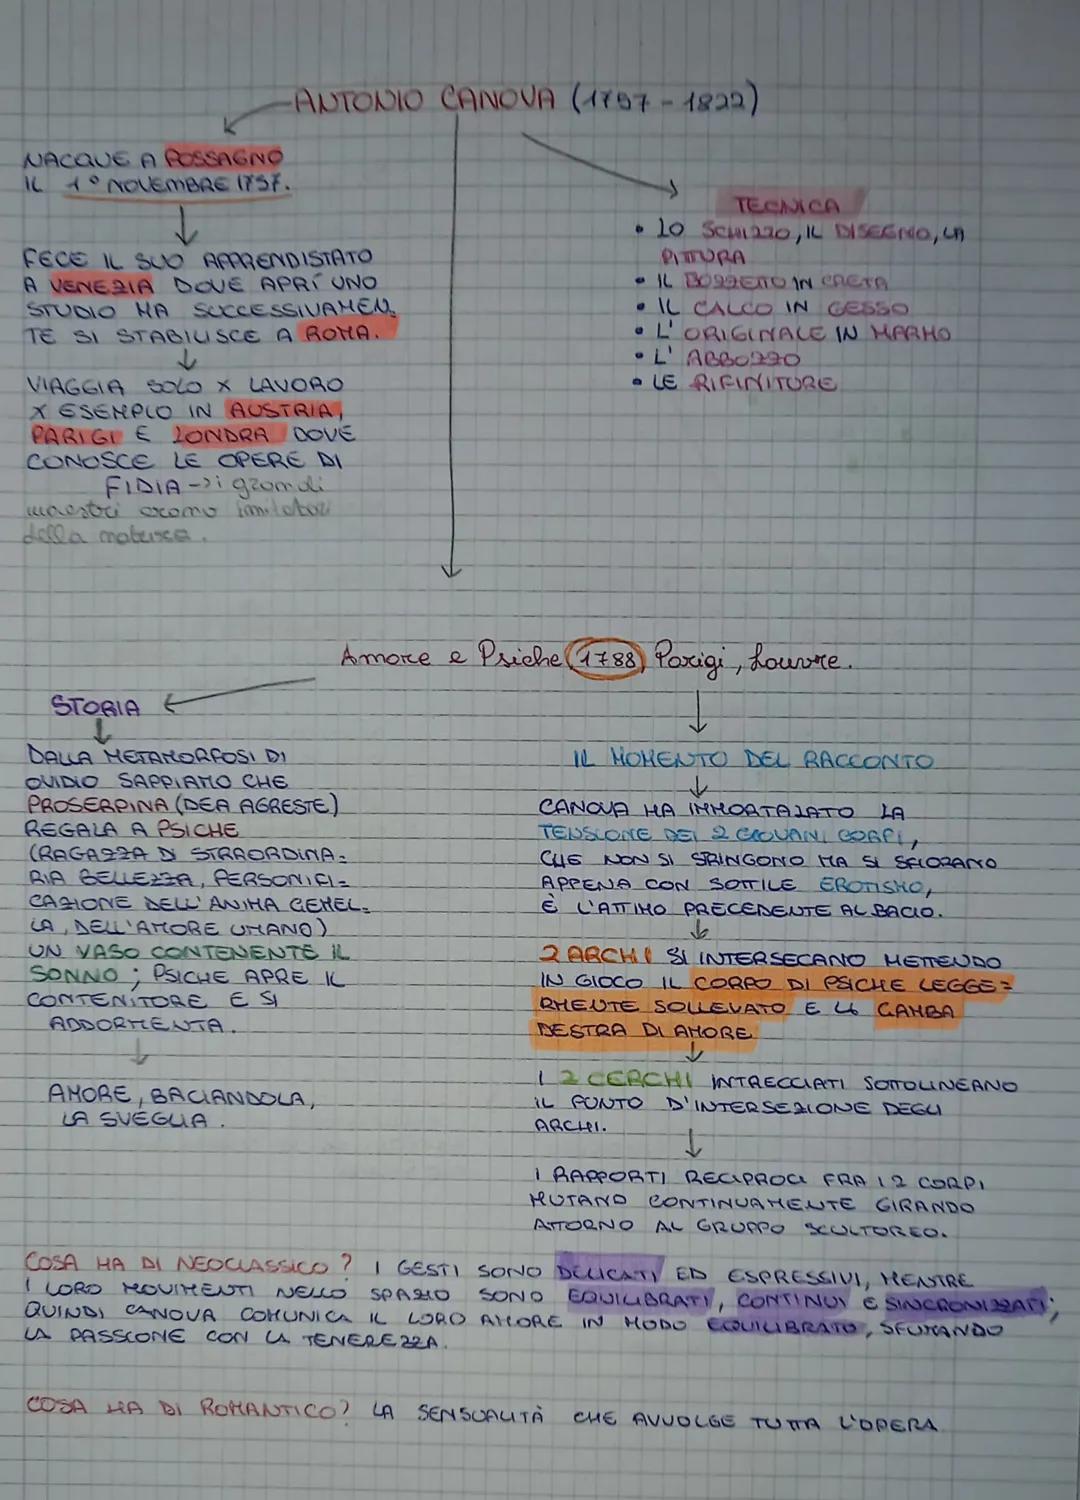 ANTONIO CANOVA (1757 - 1822)
NACQUE A POSSAGNO
IL 1° NOVEMBRE 1757.
FECE IL SUO APPRENDISTATO
A VENEZIA DOVE APRÍ UNO
STUDIO MA SUCCESSIVAMEN_
TE SI STABILISCE A ROMA.
VIAGGIA SOLO X LAVORO
X ESEMPIO IN AUSTRIA,
PARIGI E LONDRA DOVE
CONOSCE LE OPERE DI
FIDIA -> i grandi
maestri erano imitatori
della natura.
TECNICA
• LO SCHIZZO, IL DISEGNO, LA
PITTURA
• IL BOZZETTO IN CRETA
• IL CALCO IN GESSO
• L'ORIGINALE IN MARMO
• L'ABBOZZO
• LE RIFINITURE
Amore e Psiche (1788) Parigi, Louvre.
STORIA
DALLA METAMORFOSI DI
OVIDIO SAPPIAMO CHE
PROSERPINA (DEA AGRESTE)
REGALA A PSICHE
(RAGAZZA DI STRAORDINA=
RIA BELLEZZA, PERSONIFI=
CAZIONE DELL'ANIMA GEMEL=
LA, DELL'AMORE UMANO)
UN VASO CONTENENTE IL
SONNO; PSICHE APRE IL
CONTENITORE E SI
ADDORMENTA.
AMORE, BACIANDOLA,
LA SVEGLIA.
IL MOMENTO DEL RACCONTO
CANOVA HA IMMORTALATO LA
TENSIONE DEI 2 GIOVANI CORPI,
CHE NON SI STRINGONO MA SI SFIORANO
APPENA CON SOTTILE EROTISMO,
È L'ATTIMO PRECEDENTE AL BACIO.
2 ARCHI SI INTERSECANO METTENDO
IN GIOCO IL CORPO DI PSICHE LEGGE=
RMENTE SOLLEVATO E LA GAMBA
DESTRA DI AMORE
I 2 CERCHI INTRECCIATI SOTTOLINEANO
IL PUNTO D'INTERSEZIONE DEGLI
ARCHI.
I RAPPORTI RECIPROCI FRA I 2 CORPI
MUTANO CONTINUAMENTE GIRANDO
ATTORNO AL GRUPPO SCULTOREO.
COSA HA DI NEOCLASSICO? I GESTI SONO DELICATI ED ESPRESSIVI, MENTRE
I LORO MOVIMENTI NELLO SPAZIO SONO EQUILIBRATI, CONTINUI E SINCRONIZZATI;
QUINDI CANOVA COMUNICA IL LORO AMORE IN MODO EQUILIBRATO, SFUMANDO
LA PASSIONE CON LA TENEREZZA.
COSA HA DI ROMANTICO? LA SENSUALITÀ CHE AVVOLGE TUTTA L'OPERA